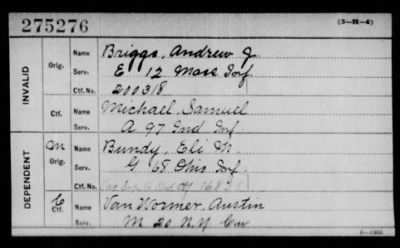 275276 (3-26-4)
INVALID
Orig. Name Briggs, Andrew J.
Serv. E 12 Mass Inf.
Ctf. No. 200318
Ctf. Name Michael, Samuel
Serv. A 97 Ind Inf.
DEPENDENT
M Orig. Name Bundy, Eli M.
Serv. G 68 Ohio Inf.
Ctf. No.
C Ctf. Name Van Wormer, Austin
Serv. M 20 N.Y. Cav